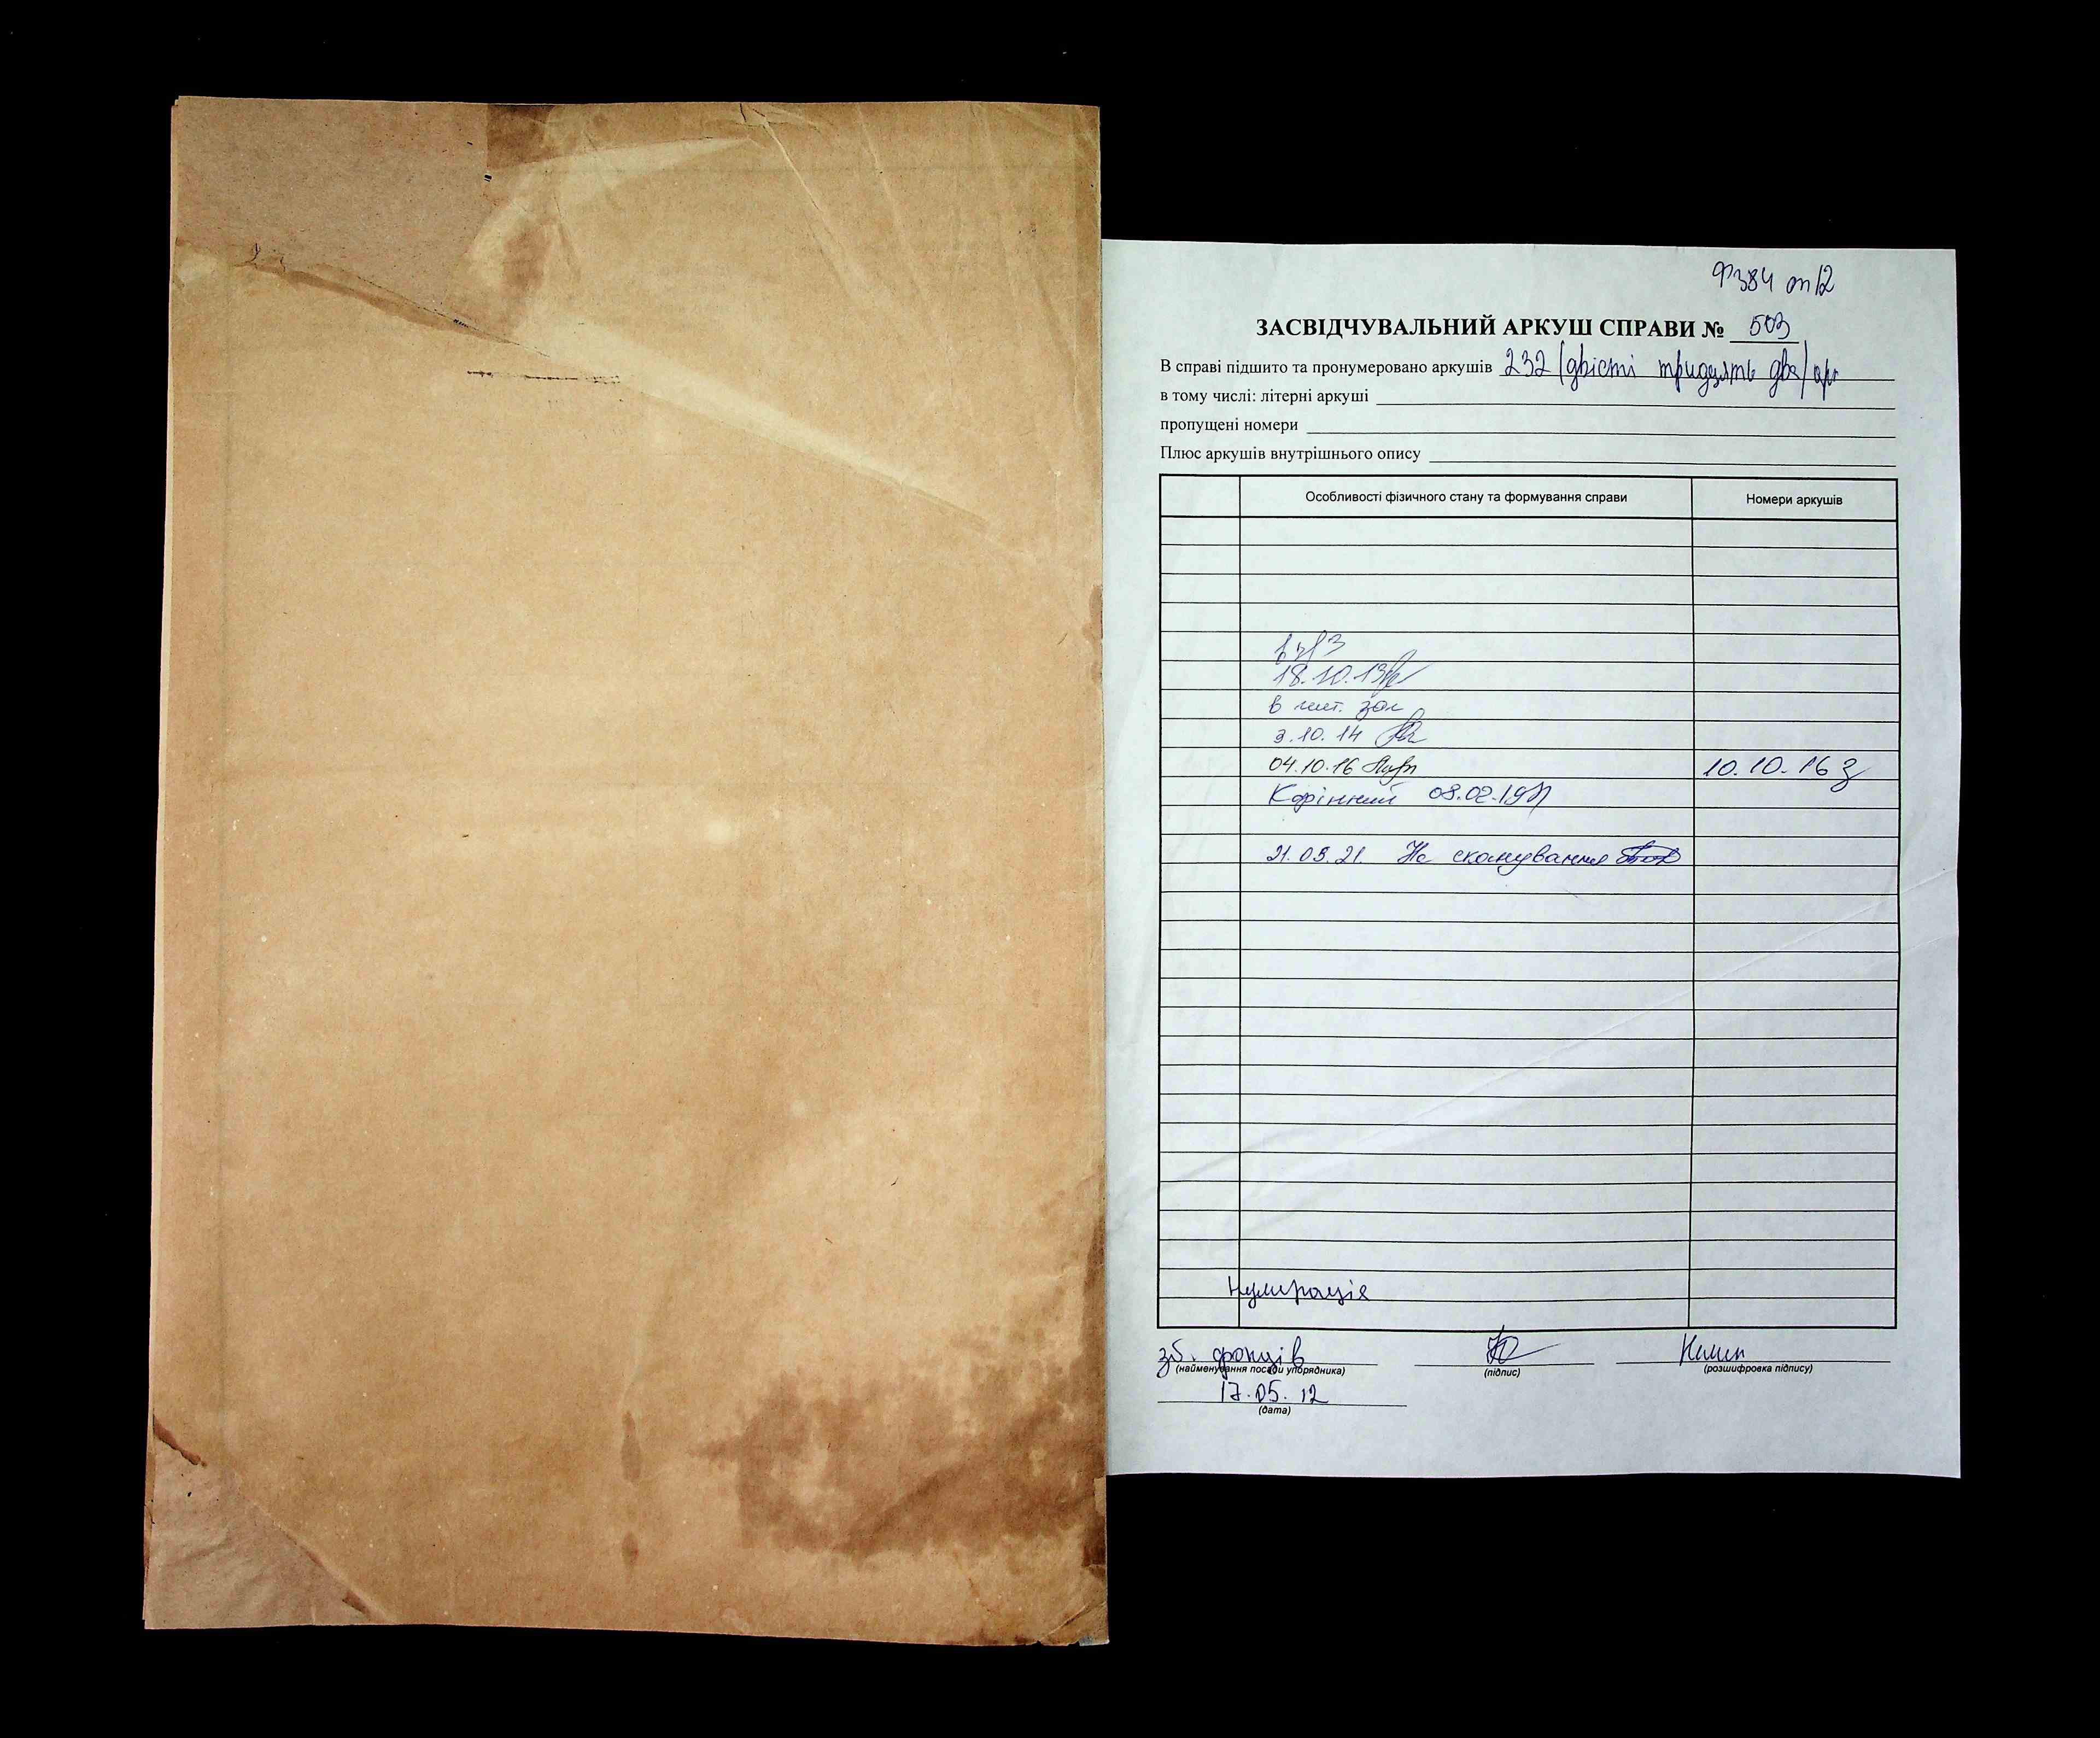 Ф384 оп12
ЗАСВІДЧУВАЛЬНИЙ АРКУШ СПРАВИ № 503
В справі підшито та пронумеровано аркушів 232 (двісті тридцять два) арк
в тому числі: літерні аркуші
пропущені номери
Плюс аркушів внутрішнього опису
Особливості фізичного стану та формування справи Номери аркушів
18.10.13
в чит. зал
3.10.14
04.10.16 10.10.16
08.02.19
21.05.21. На сканування
Нумерація
зб. фондів
(найменування посади упорядника) (підпис) (розшифровка підпису)
17.05.12
(дата)